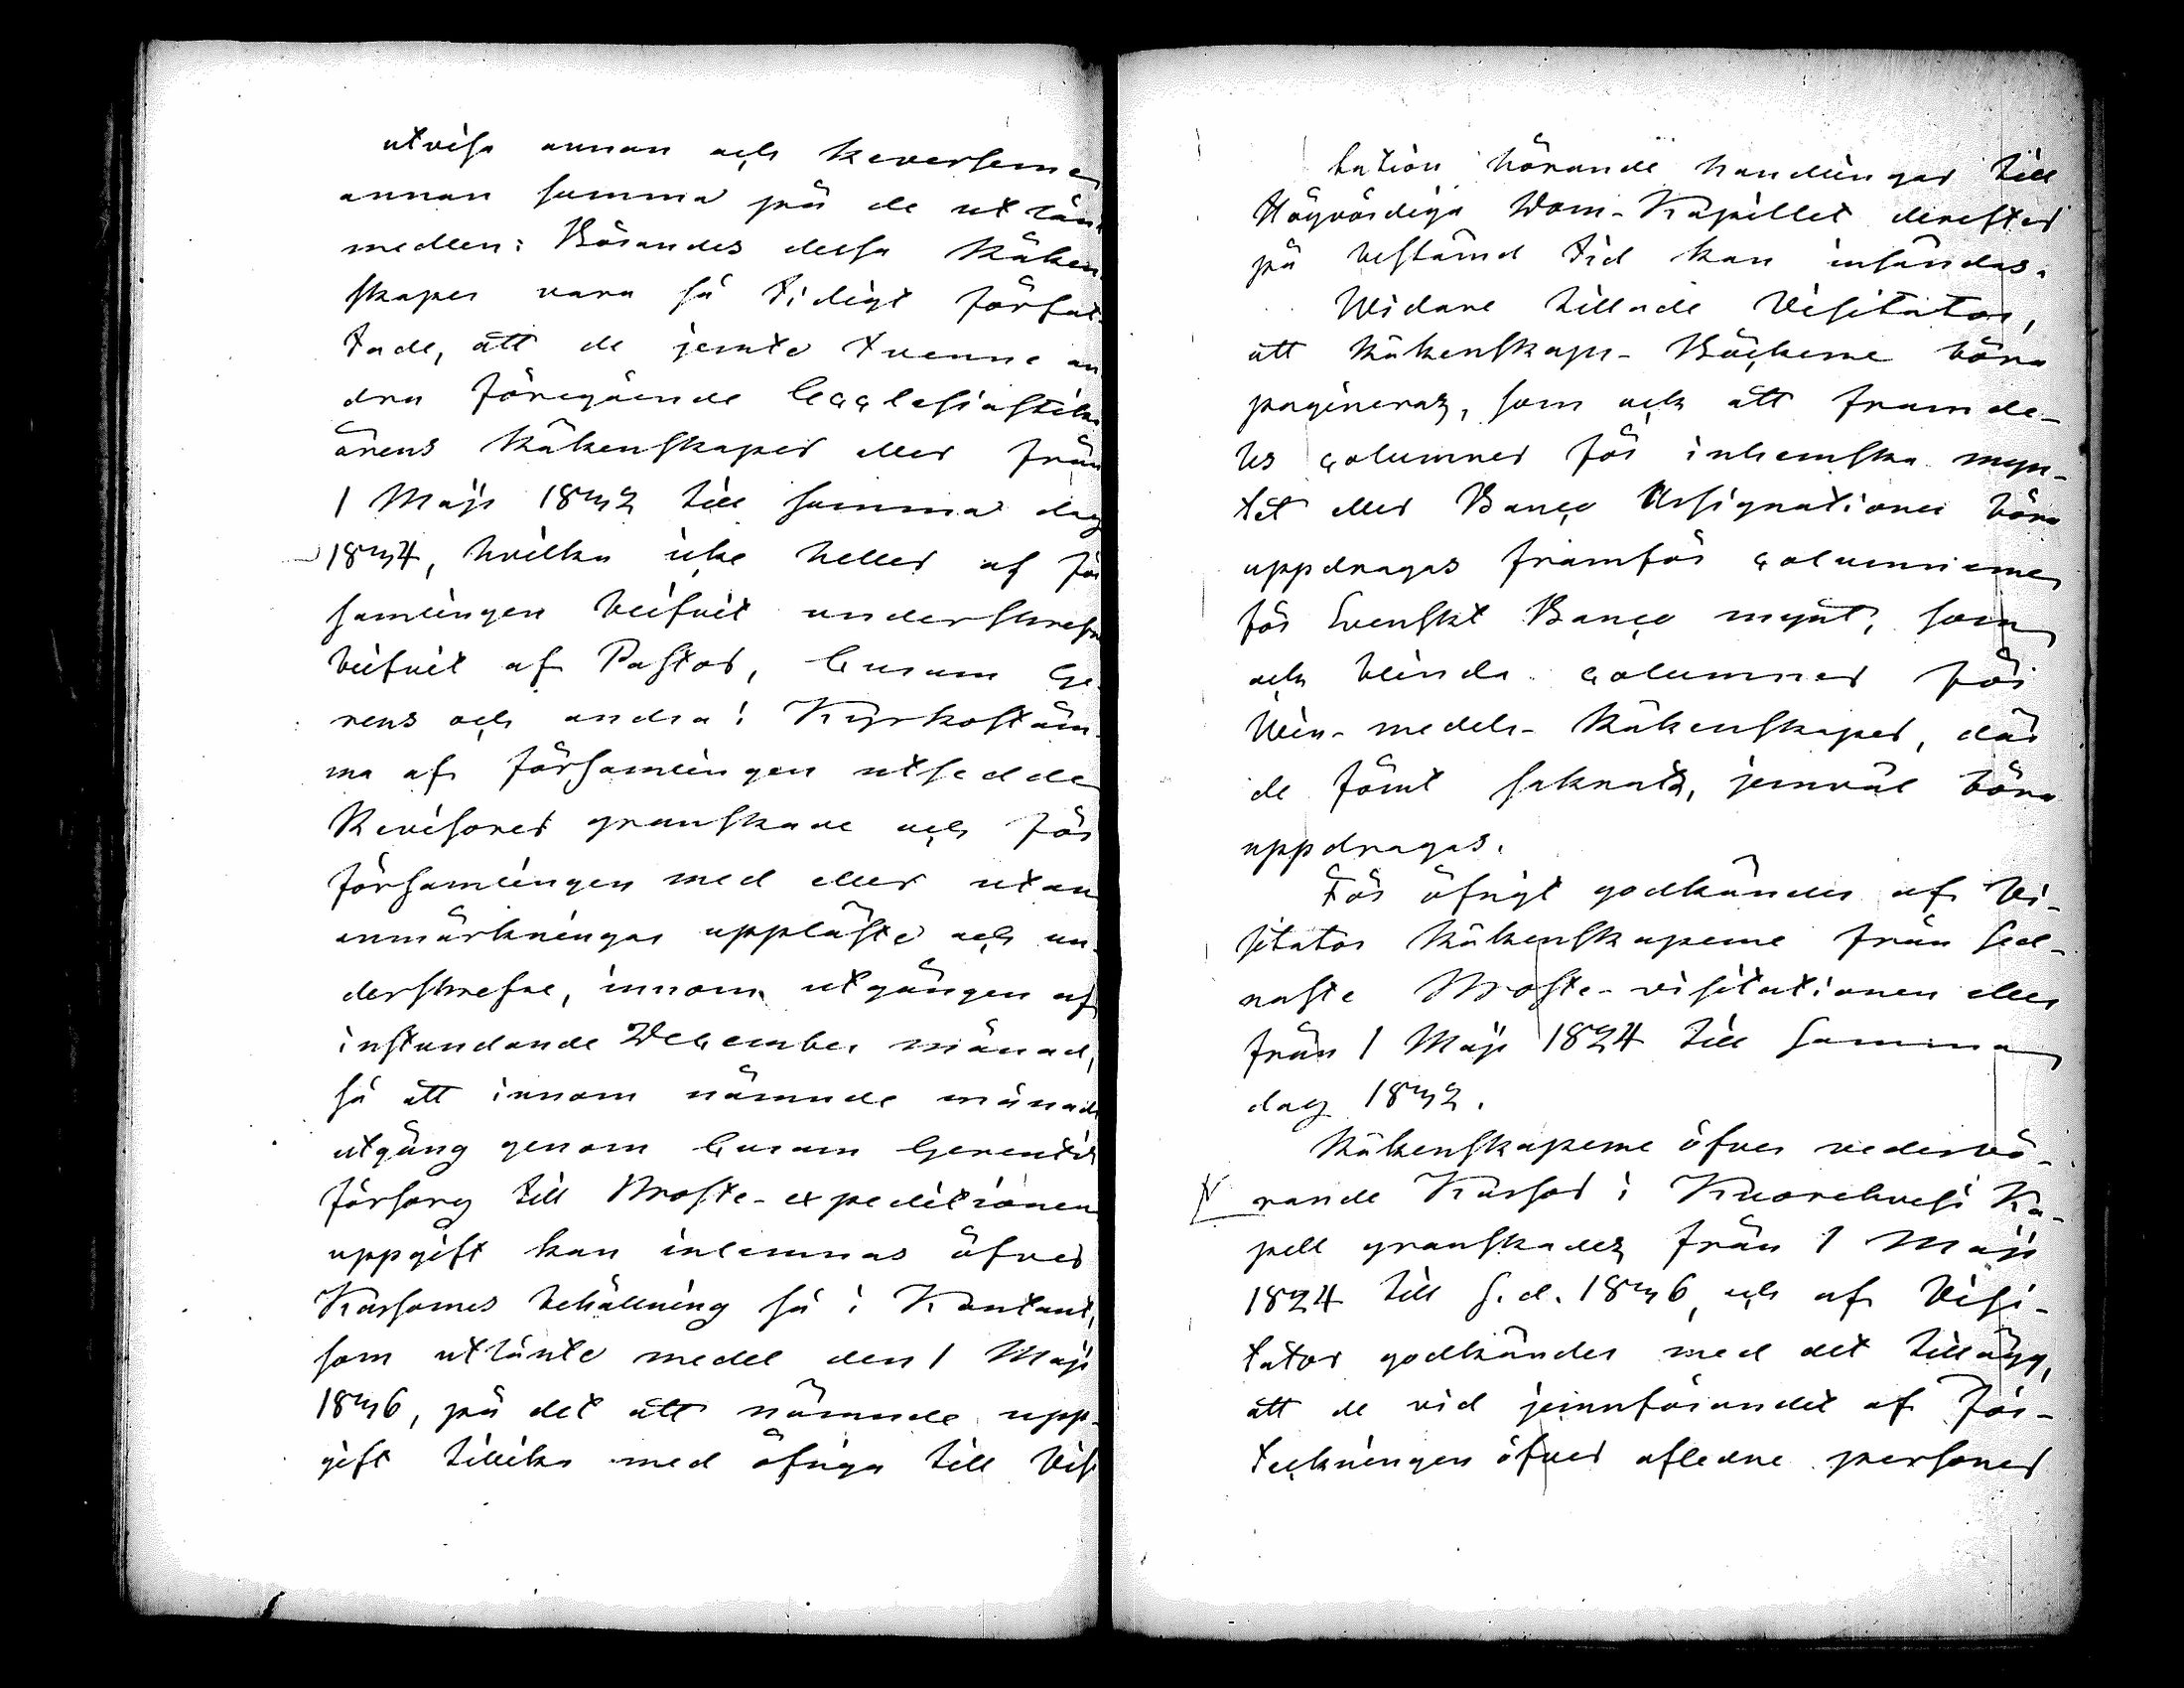 utvisa annan och Reverserne
annan summa på de utlänt
medlen: Börandes dessa Räken
skaper vara så tidigt förfat-
tade, att de jemte tvenne an
dra föregående Ecclesiastika
årens Räkenskaper eller från
1 Maji 1832 till samma dag
1834, hvilka icke heller af för
samlingen blifvit underskrefne
blifvit af Pastor, Curam Ge-
rens och andra i Kyrkostäm-
ma af församlingen utsedde
Revisorer granskade och för
församlingen med eller utan
anmärkningar uppläste och un-
derskrefne, innom utgången af
instundande December månad,
så att innom nämnde månads
utgång genom Curam Gerentis
försorg till Proste-expeditionen
uppgift kan inlemnas öfver
Kassornes behållning så i Kontant,
som utlänte medel den 1 Maji
1836, på det att nämnde upp-
gift tillika med öfriga till Visi
tation hörande handlingar till
Högvördiga Dom-Kapitlet derefter
på bestämd tid kan insändas.
Widare tillade Visitator,
att Räkenskaps-Böckerne böra
pagineras, som ock att framde-
les columner för inhemska myn-
tet eller Banco Assignationer böra
uppdragas framför columnerne
för Svenskt Banco mynt, som
och blinda columner för
Win-medels-Räkenskaper, där
de förut saknats, jemväl böra
uppdragas.
För öfrigt godkändes af Vi-
sitator Räkenskaperne från sed-
naste Proste-visitationen eller
från 1 Maji 1824 till samma
dag 1832.
Räkenskaperne öfver vederbö-
rande Kassor i Kuorehvesi Ka-
pell granskades från 1 Maji
1824 till s. d. 1836, och af Visi-
tator godkändes med det tillägg,
att de vid jemnförandet af För-
teckningen öfver afledne personer